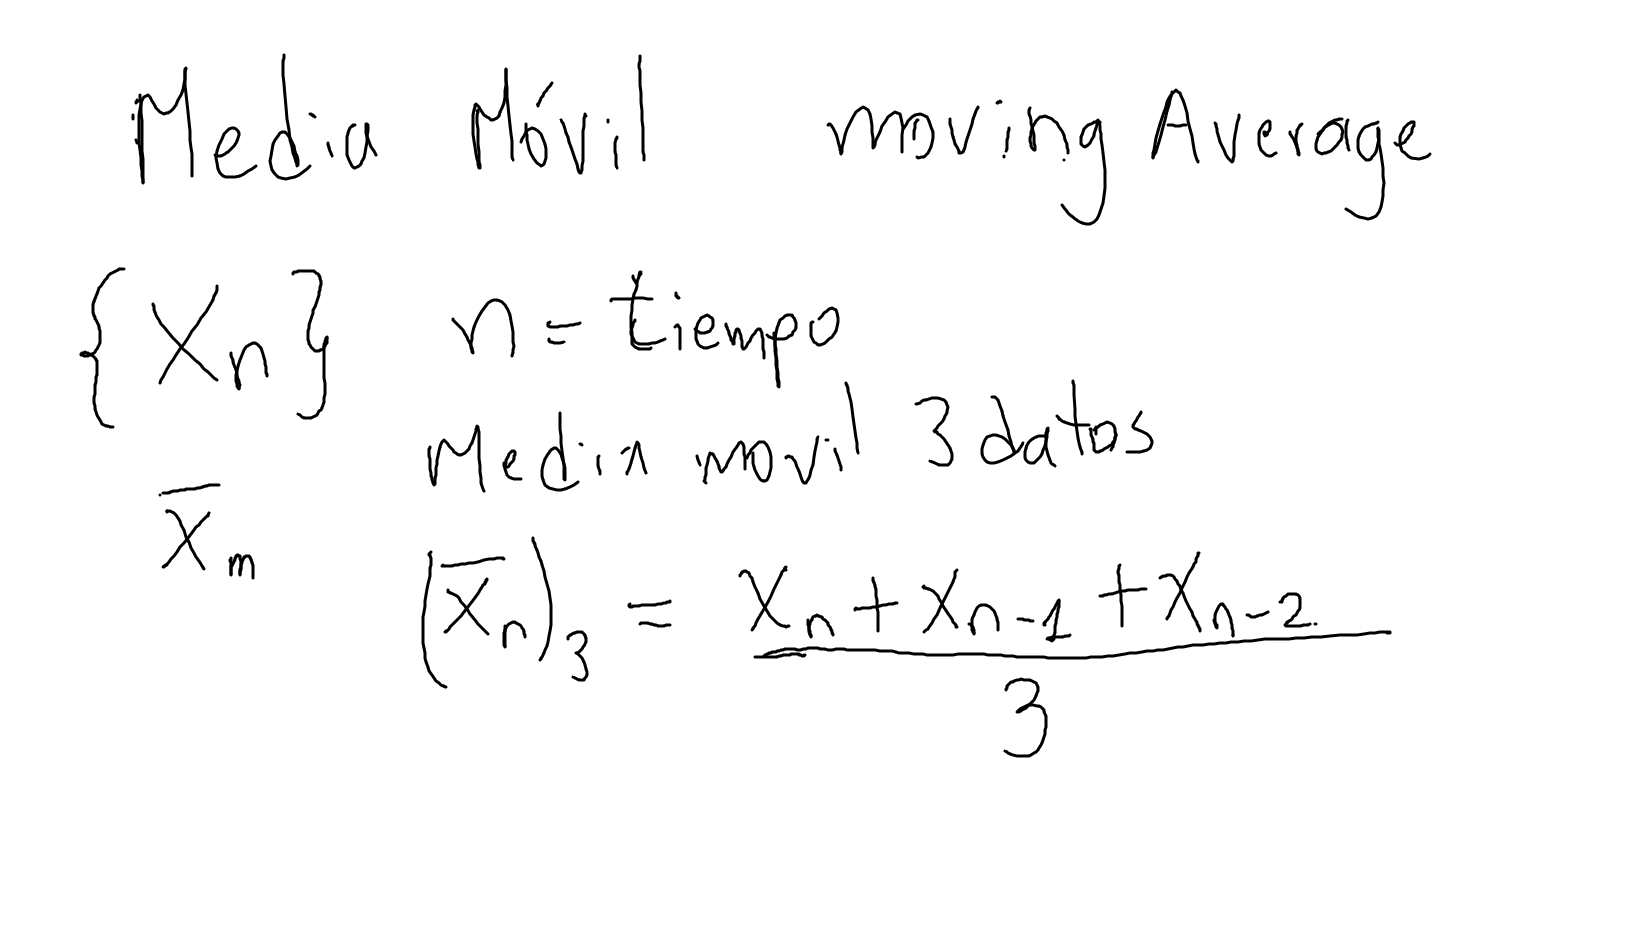 Media Móvil moving Average
{Xn} n = tiempo
Media movil 3 datos
X̄m
(X̄n)3 = Xn + Xn-1 + Xn-2
3